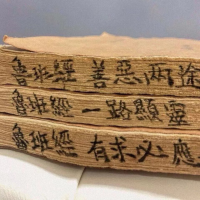 魯班經 善惡两途
魯班經 一路顯靈
魯班經 有求必應